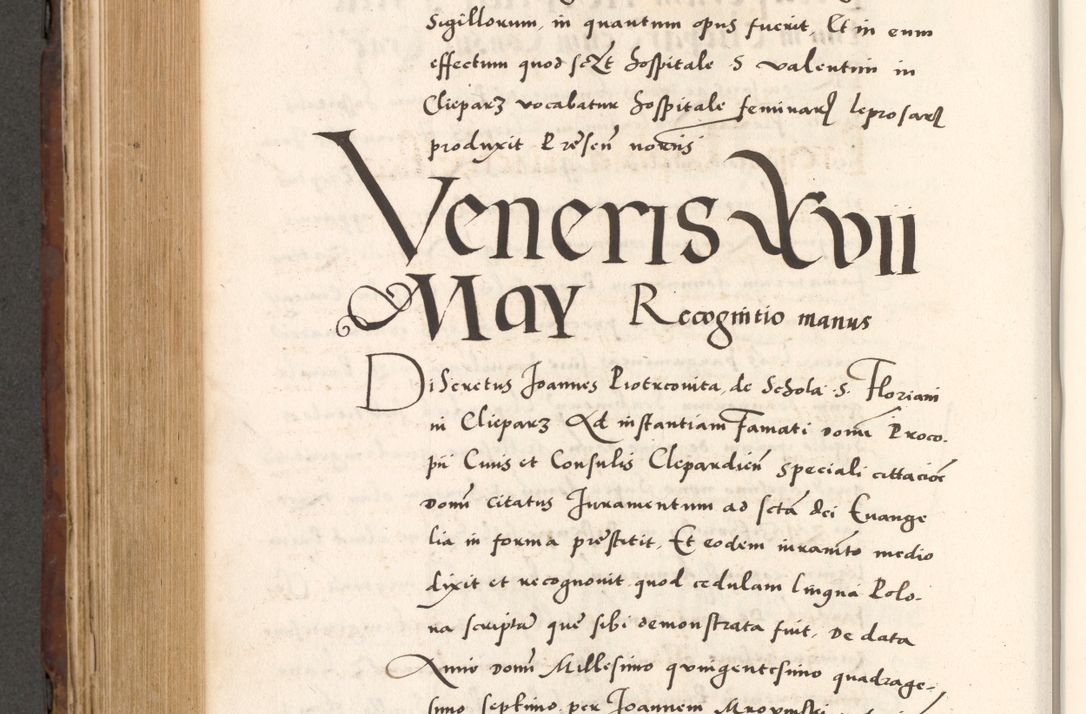 Sigillorum, in quantum opus fuerit, Et in eum
effectum quod hospitale S valentini in
Clieparz vocabatur hospitale feminarum leprosarum
produxit Presen notis
Veneris Xvii
May Recognitio manus
Discretus Joannes Piotrcovita, de Schola S. Floriani
in Clieparz Ad instantiam Famati domi Proco-
pii Civis et Consulis Clepardien speciali cittacioe
domi citatus Juramentum ad scta dei Evange
lia in forma prestitit, Et eodem iuramto medio
dixit et recognovit quod cedulam lingua Polo-
na scripta que sibi demonstrata fuit, De data
Anno domi Millesimo quingentesimo quadrage-
simo septimo per Joannem Mrovinski